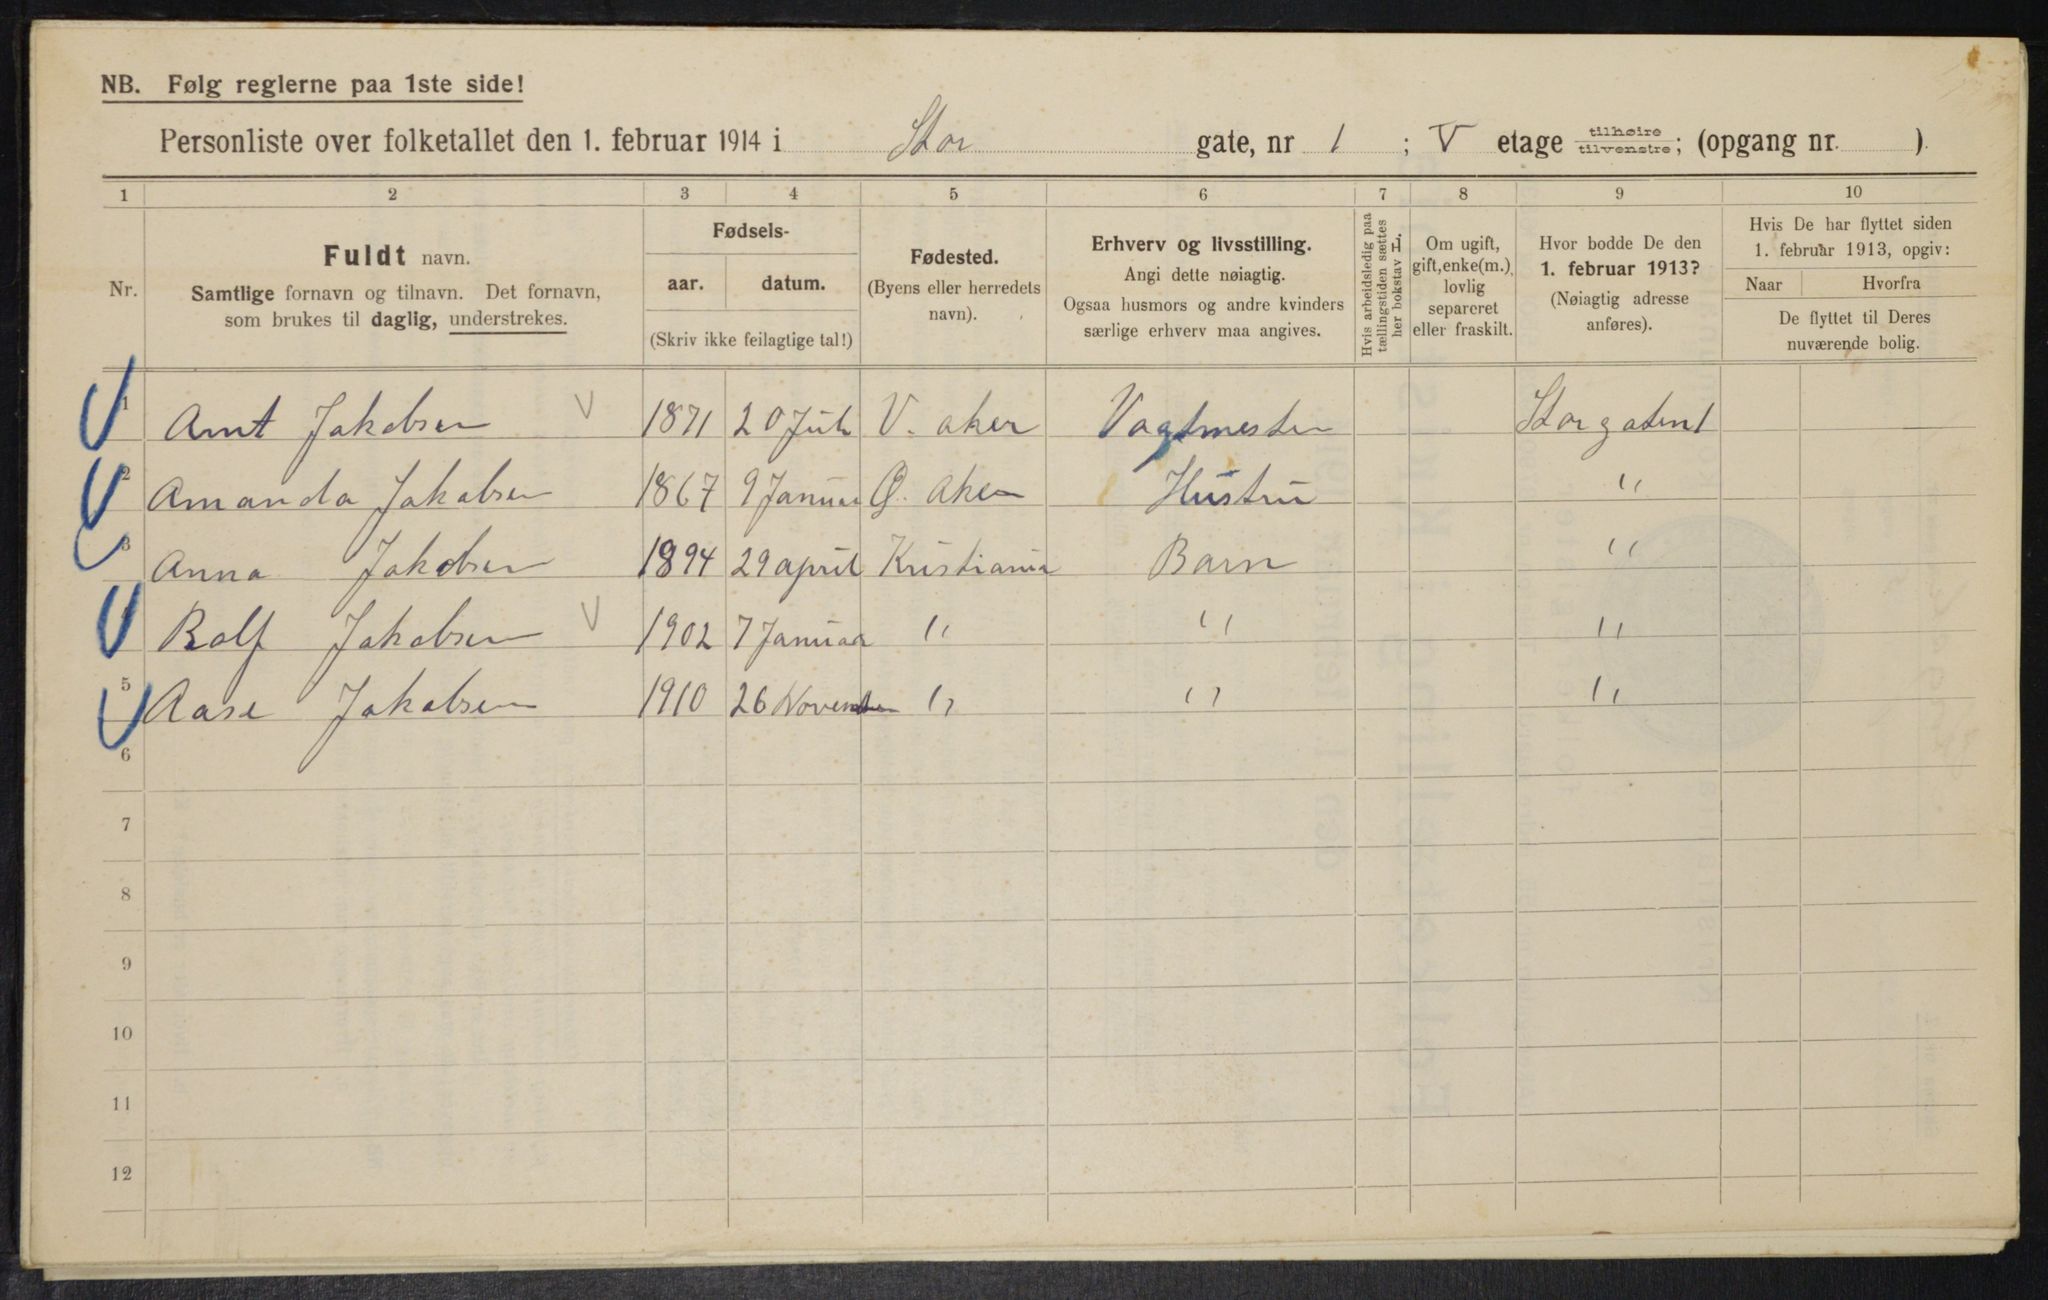 NB. Følg reglerne paa 1ste side!
Personliste over folketallet den 1. februar 1914 i Stor gate, nr 1 ; V etage tilhøire tilvenstre; (opgang nr. )
1 2 3 4 5 6 7 8 9 10
Nr.
Fuldt navn.
Samtlige fornavn og tilnavn. Det fornavn,
som brukes til daglig, understrekes.
Fødsels-
aar. datum.
(Skriv ikke feilagtige tal!)
Fødested.
(Byens eller herredets
navn).
Erhverv og livsstilling.
Angi dette nøiagtig.
Ogsaa husmors og andre kvinders
særlige erhverv maa angives.
Hvis arbeidsledig paa
tællingstiden sættes
her bokstav L.
Om ugift,
gift, enke(m.),
lovlig
separeret
eller fraskilt.
Hvor bodde De den
1. februar 1913?
(Nøiagtig adresse
anføres).
Hvis De har flyttet siden
1. februar 1913, opgiv:
Naar Hvorfra
De flyttet til Deres
nuværende bolig.
1 Arnt Jakobsen V 1871 20 Juli V. aker Vagtmester Storgaten 1
2 Amanda Jakobsen 1867 9 Januar Ø. aker Hustru "
3 Anna Jakobsen 1894 29 april Kristiania Barn "
Rolf Jakobsen V 1902 7 Januar " " "
5 Aase Jakobsen 1910 26 November " " "
6
7
8
9
10
11
12